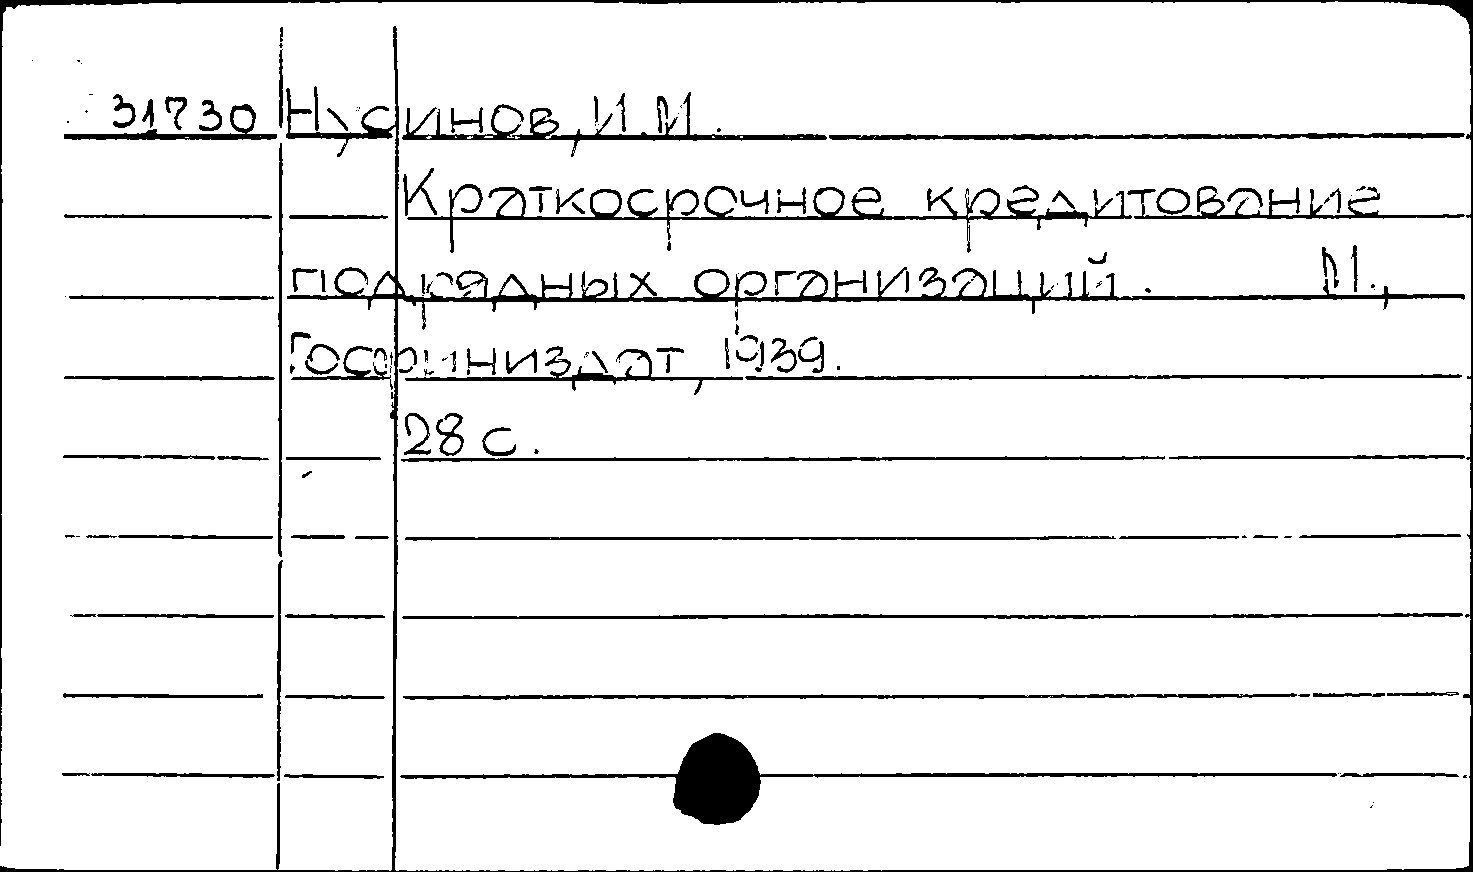 31730 Нусинов, И.М.
Краткосрочное кредитование
подрядных организаций. М.,
Госфиниздат, 1939.
28 с.